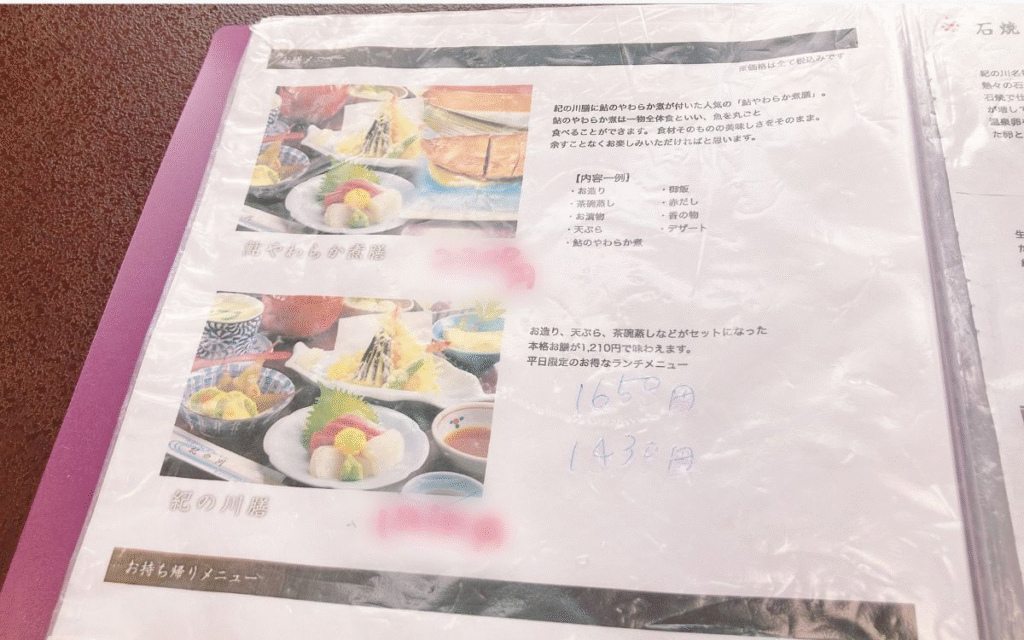 ※価格は全て税込みです
紀の川膳に鮎のやわらか煮が付いた人気の「鮎やわらか煮膳」。
鮎のやわらか煮は一物全体食といい、魚を丸ごと
食べることができます。食材そのものの美味しさをそのまま。
余すことなくお楽しみいただければと思います。
【内容一例】
・お造り
・茶碗蒸し
・お漬物
・天ぷら
・鮎のやわらか煮
・御飯
・赤だし
・香の物
・デザート
鮎やわらか煮膳
お造り、天ぷら、茶碗蒸しなどがセットになった
本格お膳が1,210円で味わえます。
平日限定のお得なランチメニュー
1650円
1430円
紀の川膳
お持ち帰りメニュー
石焼
紀の川名
熱々の石
石焼で仕
が増して
温泉卵
た卵と